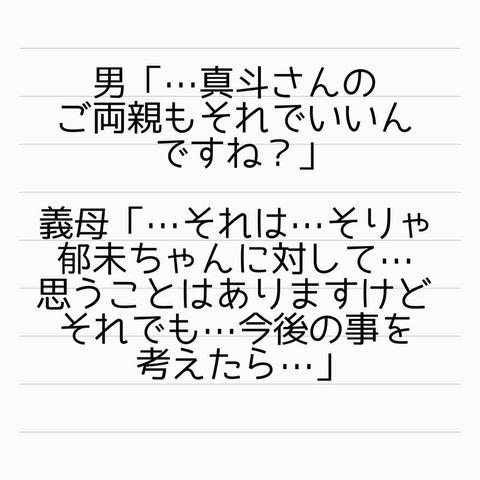 男「…真斗さんの
ご両親もそれでいいん
ですね？」
義母「…それは…そりゃ
郁未ちゃんに対して…
思うことはありますけど
それでも…今後の事を
考えたら…」